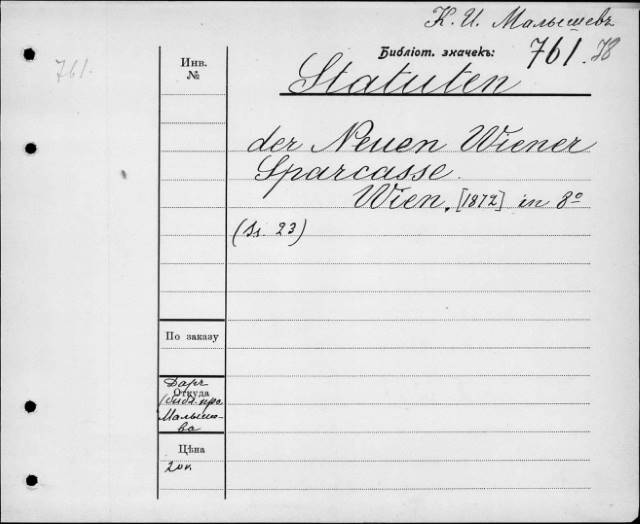 К. И. Малышевъ
761.
Инв.
№
Библіот. значекъ:
761. 78
Statuten
der Neuen Wiener
Sparcasse.
Wien. [1872] in 8º
(Ss. 23)
По заказу
Даръ
Откуда
Малыше-
ва
Цѣна
20к